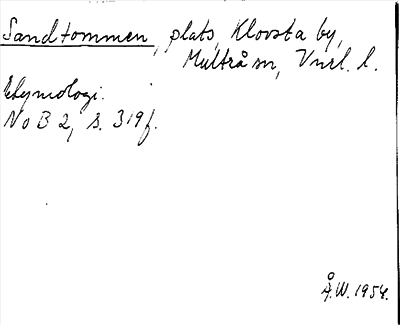 Sandtommen, plats, Klovsta by,
Multrå sn, Vnrl. l.
Etymologi.
NoB 2, s. 319f.
Å.W. 1954.